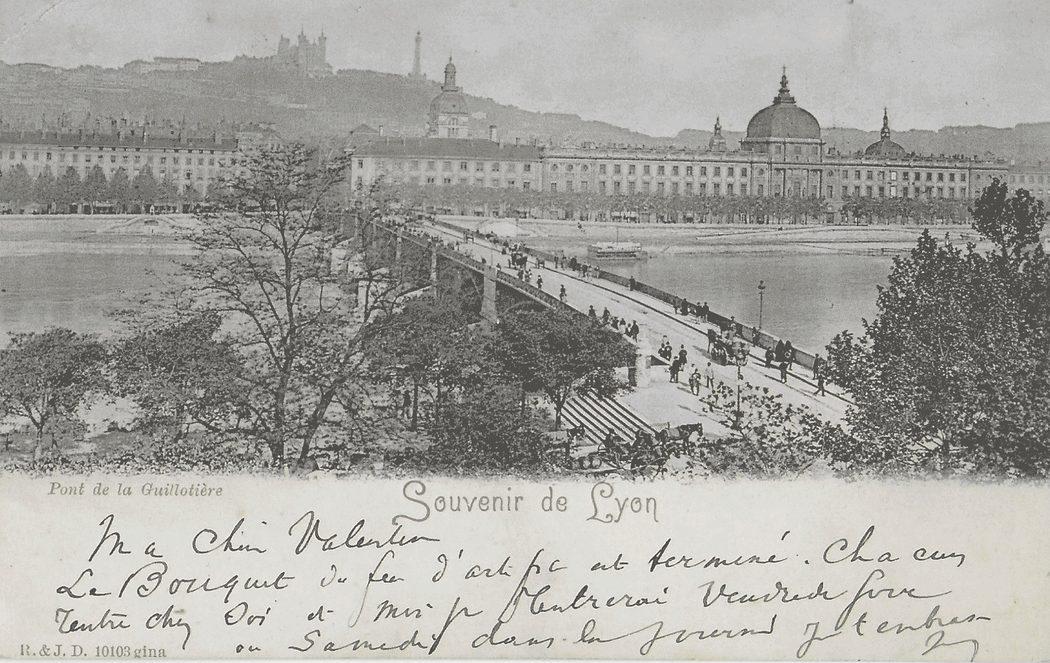 Pont de la Guillotière
Souvenir de Lyon
Ma chère Valentine
Le Bouquet du feu d'artifice est terminé. Chacun
rentre chez soi et moi je rentrerai Vendredi soir
ou Samedi dans la journée je t'embrasse
R. & J. D. 10103 gina